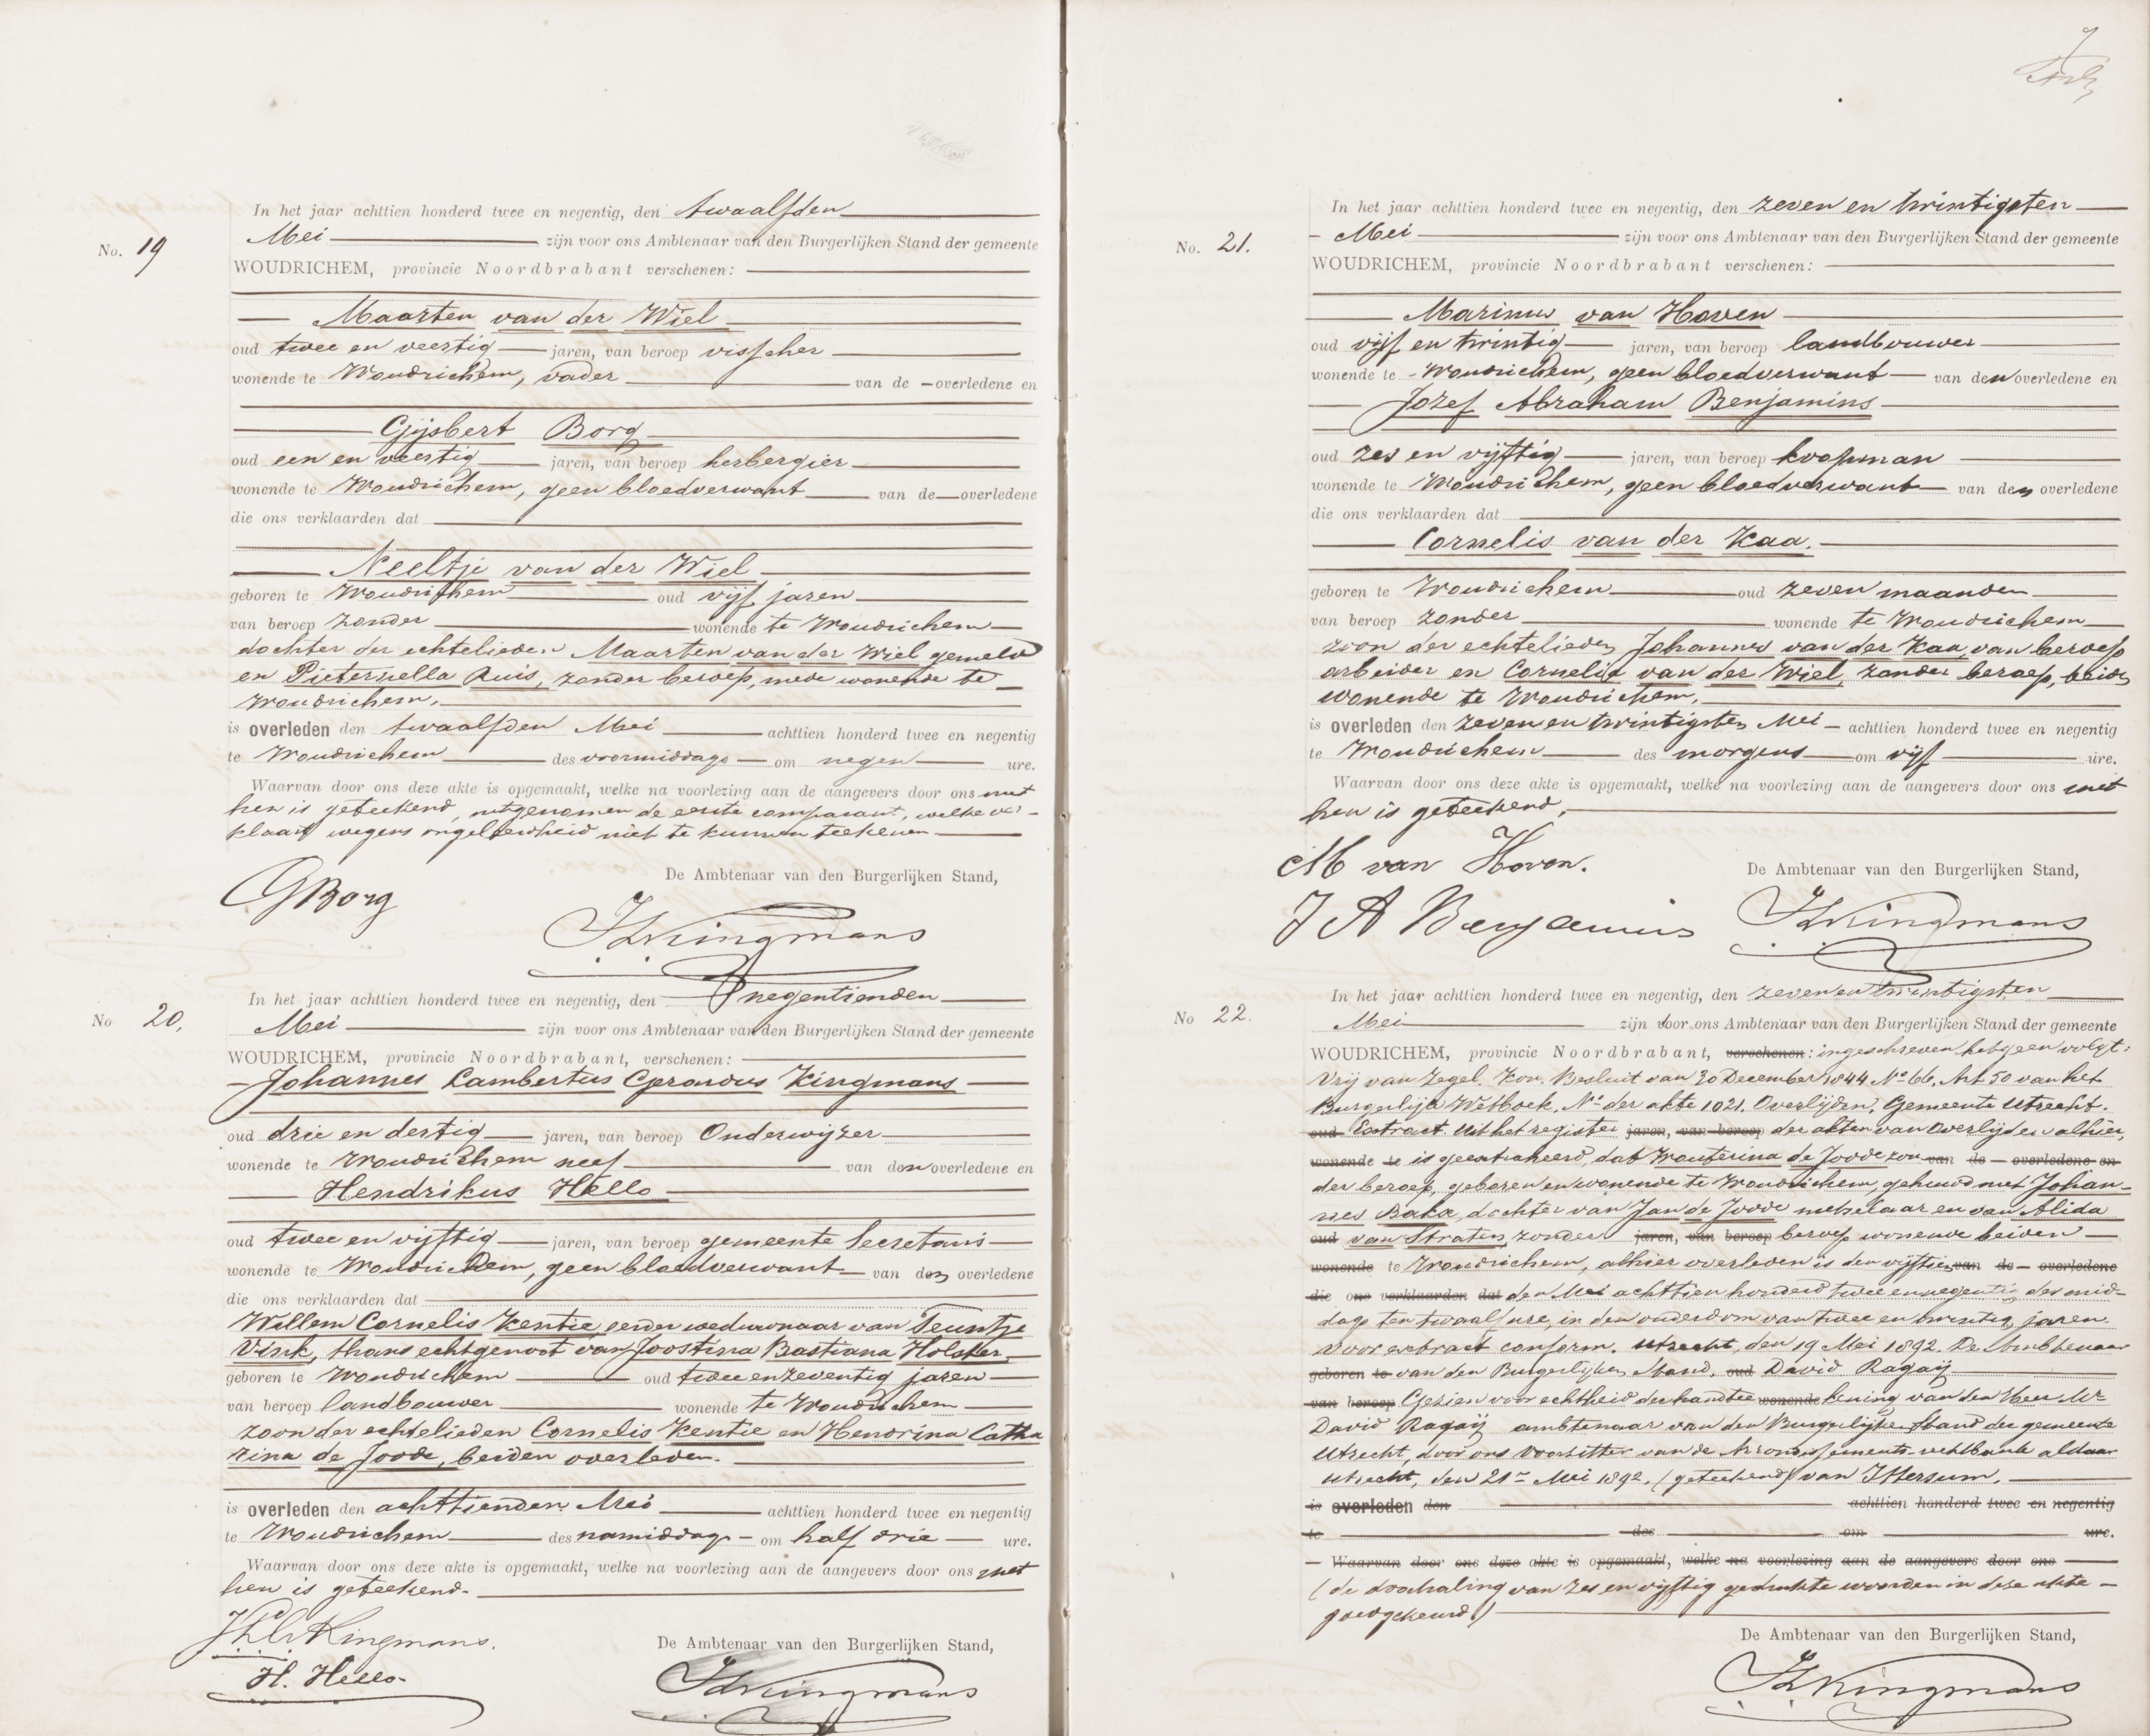 No. 19
In het jaar achttien honderd twee en negentig, den twaalfden
Mei zijn voor ons Ambtenaar van den Burgerlijken Stand der gemeente
WOUDRICHEM, provincie Noordbrabant verschenen:
Maarten van der Wiel
oud twee en veertig jaren, van beroep visscher
wonende te Woudrichem, vader van de overledene en
Gijsbert Borg
oud een en veertig jaren, van beroep herbergier
wonende te Woudrichem, geen bloedverwant van de overledene
die ons verklaarden dat
Neeltje van der Wiel
geboren te Woudrichem oud vijf jaren
van beroep zonder wonende te Woudrichem
dochter der echtelieden Maarten van der Wiel gemeld
en Pieternella Ruis, zonder beroep, mede wonende te
Woudrichem,
is overleden den twaalfden Mei achttien honderd twee en negentig
te Woudrichem des voormiddags om negen ure.
Waarvan door ons deze akte is opgemaakt, welke na voorlezing aan de aangevers door ons met
hen is geteekend, uitgenomen de eerste comparant, welke ver-
klaart wegens ongeleerdheid niet te kunnen teekenen
De Ambtenaar van den Burgerlijken Stand,
GBorg
JLKingmans
No 20.
In het jaar achttien honderd twee en negentig, den negentienden
Mei zijn voor ons Ambtenaar van den Burgerlijken Stand der gemeente
WOUDRICHEM, provincie Noordbrabant, verschenen:
Johannes Lambertus Gerardus Kingmans
oud drie en dertig jaren, van beroep Onderwijzer
wonende te Woudrichem neef van den overledene en
Hendrikus Hello
oud twee en vijftig jaren, van beroep gemeente Secretaris
wonende te Woudrichem, geen bloedverwant van den overledene
die ons verklaarden dat
Willem Cornelis Kentie, eerder weduwnaar van Teuntje
Vink, thans echtgenoot van Joostina Bastiana Holster,
geboren te Woudrichem oud twee en zeventig jaren
van beroep landbouwer wonende te Woudrichem
zoon der echtelieden Cornelis Kentie en Hendrina Catha
rina de Joode, beiden overleden.
is overleden den achttienden Mei achttien honderd twee en negentig
te Woudrichem des namiddags om half drie ure.
Waarvan door ons deze akte is opgemaakt, welke na voorlezing aan de aangevers door ons met
hen is geteekend.
JLGKingmans.
De Ambtenaar van den Burgerlijken Stand,
H. Hello
JLKingmans
No. 21.
In het jaar achttien honderd twee en negentig, den zeven en twintigsten
Mei zijn voor ons Ambtenaar van den Burgerlijken Stand der gemeente
WOUDRICHEM, provincie Noordbrabant verschenen:
Marinus van Hoven
oud vijf en twintig jaren, van beroep landbouwer
wonende te Woudrichem, geen bloedverwant van den overledene en
Jozef Abraham Benjamins
oud zes en vijftig jaren, van beroep koopman
wonende te Woudrichem, geen bloedverwant van den overledene
die ons verklaarden dat
Cornelis van der Kaa.
geboren te Woudrichem oud zeven maanden
van beroep zonder wonende te Woudrichem
zoon der echtelieden Johannes van der Kaa, van beroep
arbeider en Cornelia van der Wiel, zonder beroep, beiden
wonende te Woudrichem,
is overleden den zeven en twintigsten Mei achttien honderd twee en negentig
te Woudrichem des morgens om vijf ure.
Waarvan door ons deze akte is opgemaakt, welke na voorlezing aan de aangevers door ons met
hen is geteekend,
M van Hoven.
De Ambtenaar van den Burgerlijken Stand,
J A Benjamins
JLKingmans
No 22.
In het jaar achttien honderd twee en negentig, den zeven en twintigsten
Mei zijn voor ons Ambtenaar van den Burgerlijken Stand der gemeente
WOUDRICHEM, provincie Noordbrabant, verschenen: ingeschreven hetgeen volgt:
Vrij van Zegel. Kon. Besluit van 30 December 1844 No 66. Art 50 van het
Burgerlijk Wetboek. No der akte 1021. Overlijden, Gemeente Utrecht.
oud Extract. Uit het register jaren, van beroep der akten van Overlijden alhier,
wonende te is geextraheerd, dat Wouterina de Joode zon van de overledene en
der beroep, geboren en wonende te Woudrichem, gehuwd met Johan-
nes Baka, dochter van Jan de Joode metselaar en van Alida
oud van Straten, zonder jaren, van beroep beroep wonende beiden
wonende te Woudrichem, alhier overleden is den vijftien van de overledene
die ons verklaarden dat den Mei achttien honderd twee en negentig des mid-
dags ten twaalf ure, in den ouderdom van twee en twintig jaren.
Voor extract conform. Utrecht, den 19 Mei 1892. De Ambtenaar
geboren te van den Burgerlijken Stand, oud David Ragaij
van beroep Gezien voor echtheid der handtee wonende kening van den Heer Mr
David Ragaij ambtenaar van den Burgerlijken Stand der gemeente
Utrecht, door ons Voorzitter van de Arrondissements-rechtbank aldaar
Utrecht, den 21n Mei 1892. (geteekend) van Ittersum.
is overleden den achttien honderd twee en negentig
te des om ure.
Waarvan door ons deze akte is opgemaakt, welke na voorlezing aan de aangevers door ons
(de doorhaling van zes en vijftig gedrukte woorden in deze akte
goedgekeurd.)
De Ambtenaar van den Burgerlijken Stand,
JLKingmans